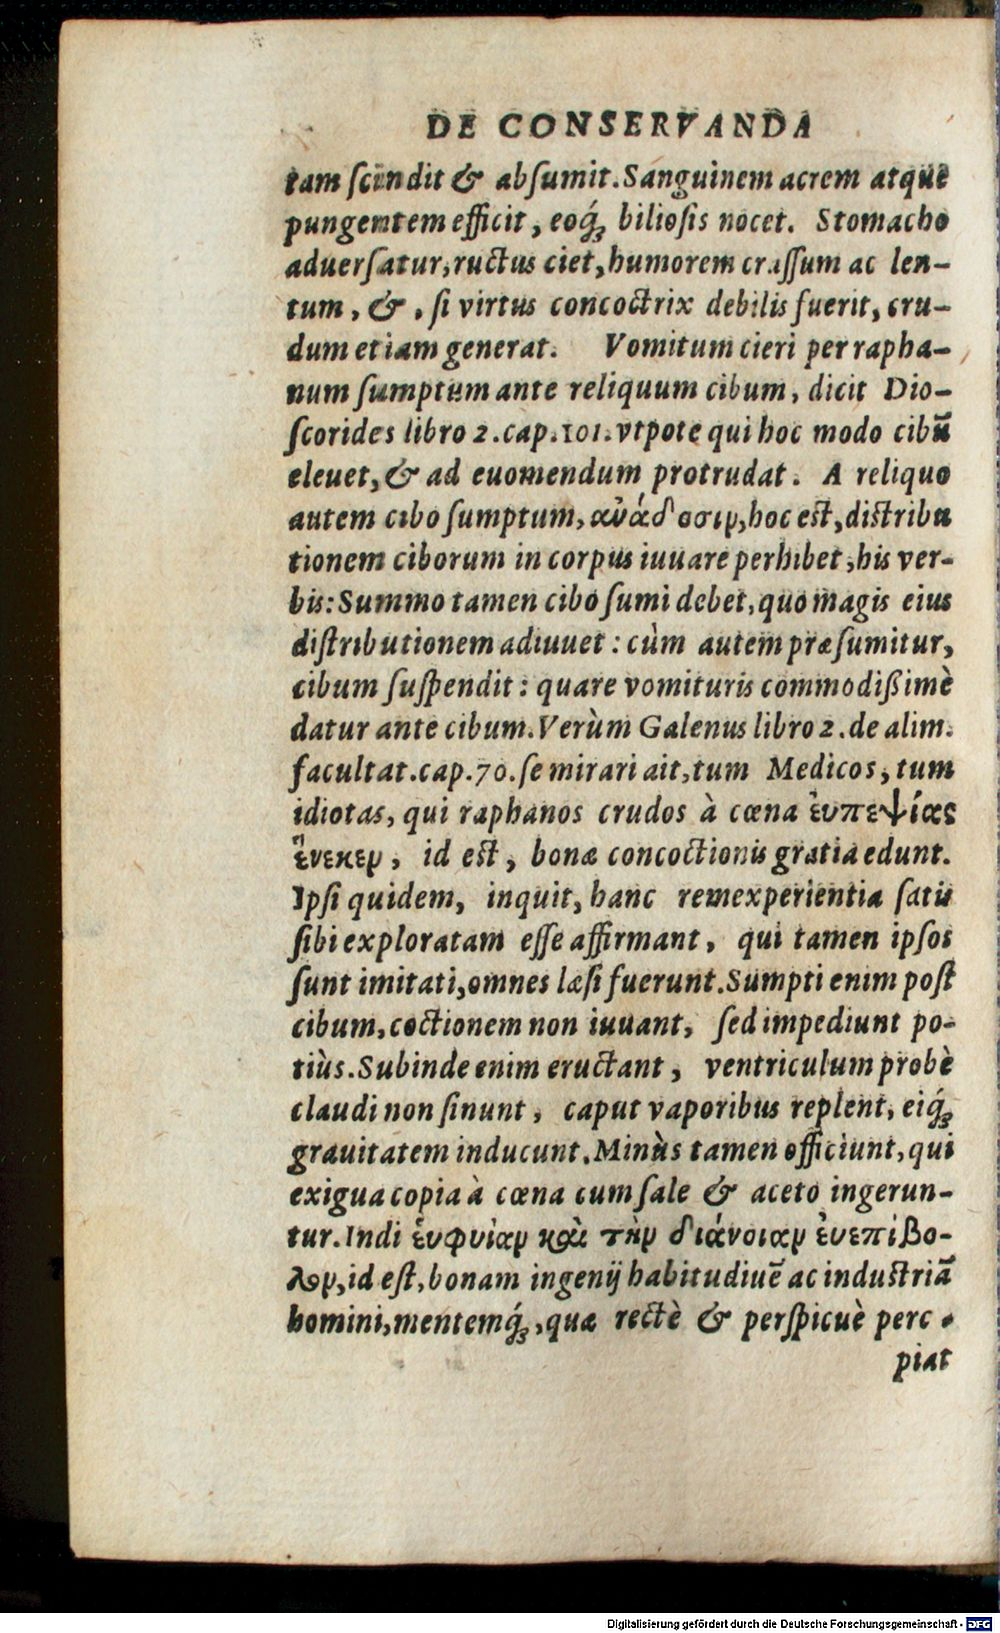 DE CONSERVANDA
tam ſcindit & abſumit. Sanguinem acrem atque
pungentem efficit, eoq́ꝫ bilioſis nocet. Stomacho
aduerſatur, ructus ciet, humorem craſſum ac len-
tum, &, ſi virtus concoctrix debilis fuerit, cru-
dum etiam generat. Vomitum cieri per rapha-
num ſumptum ante reliquum cibum, dicit Dio-
ſcorides libro 2. cap. 101. vtpote qui hoc modo cibū
eleuet, & ad euomendum protrudat. A reliquo
autem cibo ſumptum, αὐάδοσιν, hoc eſt, diſtribu
tionem ciborum in corpus iuuare perhibet, his ver-
bis: Summo tamen cibo ſumi debet, quo magis eius
diſtributionem adiuuet: cùm autem præſumitur,
cibum ſuſpendit: quare vomituris commodißimè
datur ante cibum. Verùm Galenus libro 2. de alim.
facultat. cap. 70. ſe mirari ait, tum Medicos, tum
idiotas, qui raphanos crudos à cœna ἐυπεψίας
ἕνεκεν, id eſt, bonæ concoctionis gratia edunt.
Ipſi quidem, inquit, hanc rem experientia ſatis
ſibi exploratam eſſe affirmant, qui tamen ipſos
ſunt imitati, omnes læſi fuerunt. Sumpti enim poſt
cibum, coctionem non iuuant, ſed impediunt po-
tiùs. Subinde enim eructant, ventriculum probè
claudi non ſinunt, caput vaporibus replent, eiq́ꝫ
grauitatem inducunt. Minùs tamen officiunt, qui
exigua copia à cœna cum ſale & aceto ingerun-
tur. Indi ἐυφυίαν καὶ τὴν διάνοιαν ἐυεπίβο-
λον, id eſt, bonam ingenij habitudinē ac induſtriā
homini, mentemq́ꝫ, quæ rectè & perſpicuè perc
piat
Digitalisierung gefördert durch die Deutsche Forschungsgemeinschaft - DFG